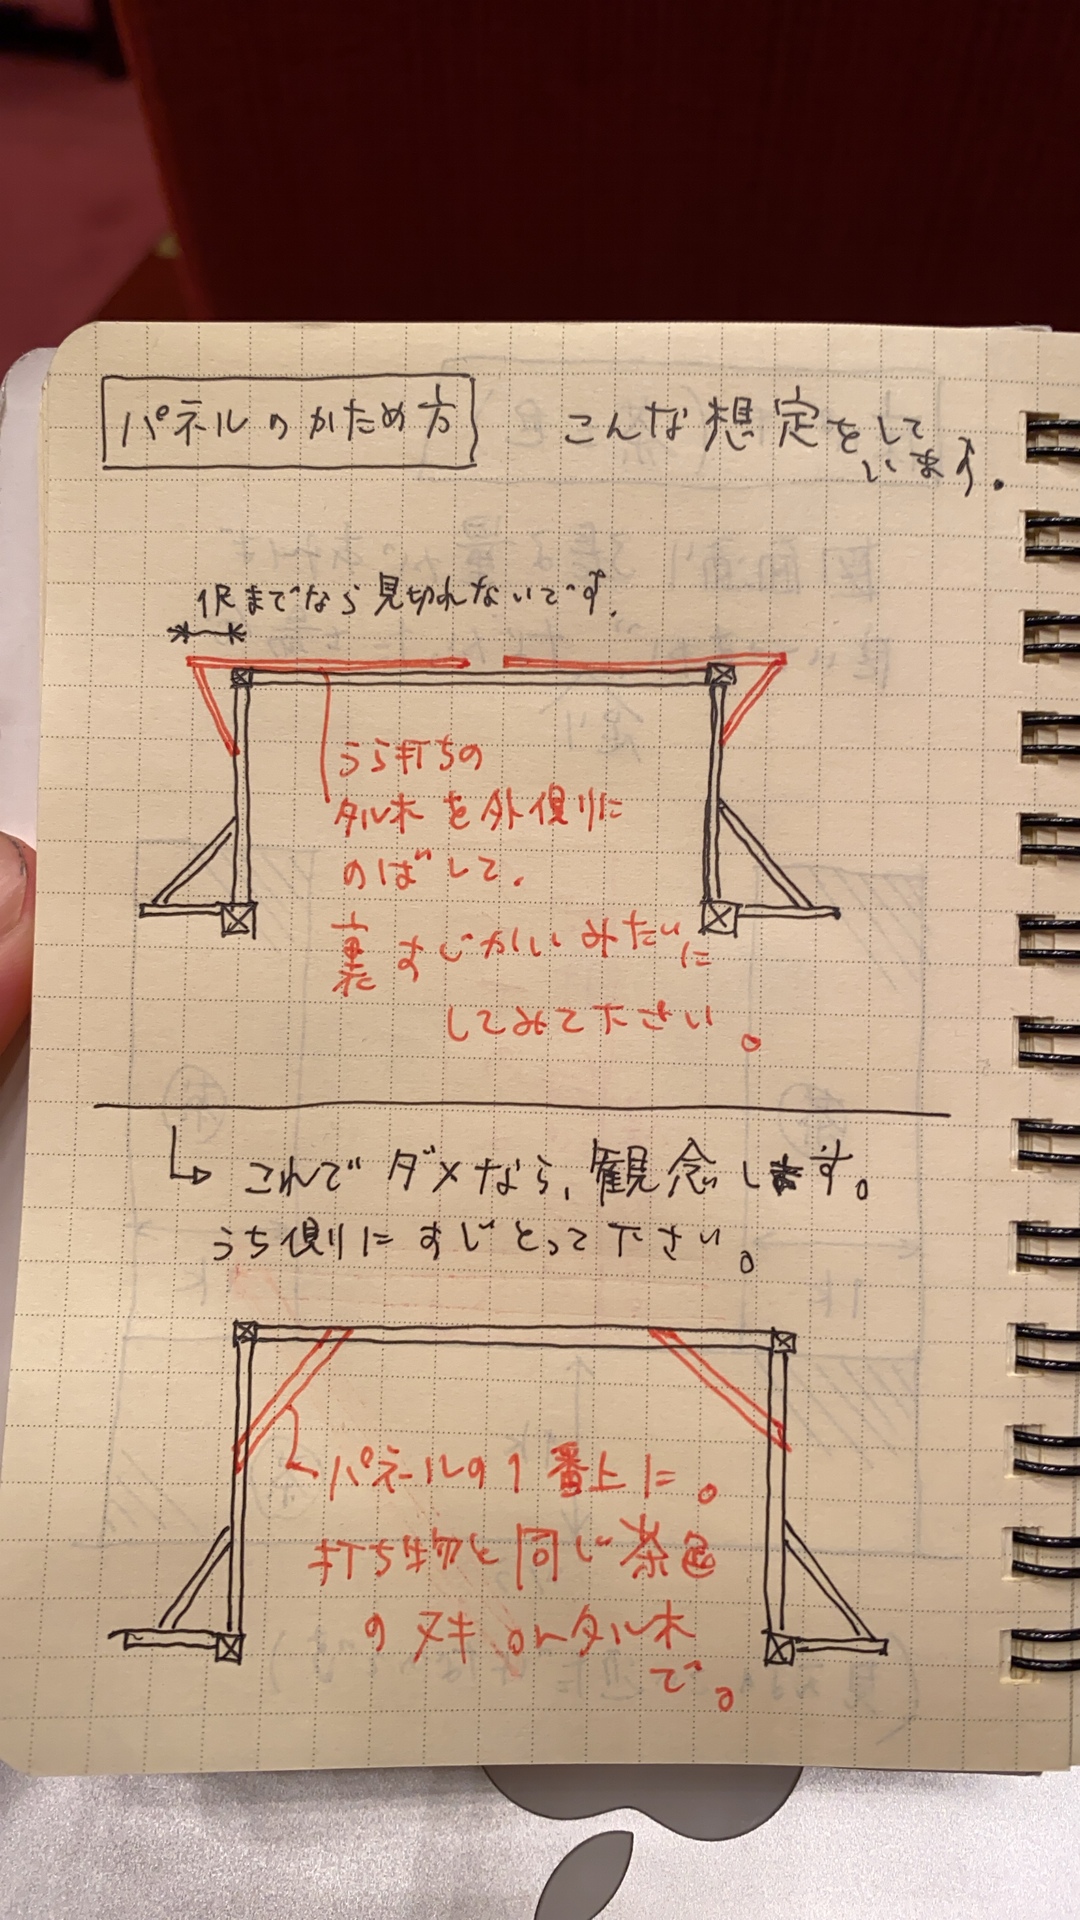 パネルのかため方
こんな想定をして
います。
1尺までなら見切れないです。
うら打ちの
タル木を外側に
のばして.
裏すじかいみたいに
してみて下さい。
これでダメなら、観念します。
うち側にすじとって下さい。
パネールの1番上に。
打ち物と同じ茶色
のヌキ orタル木
で。